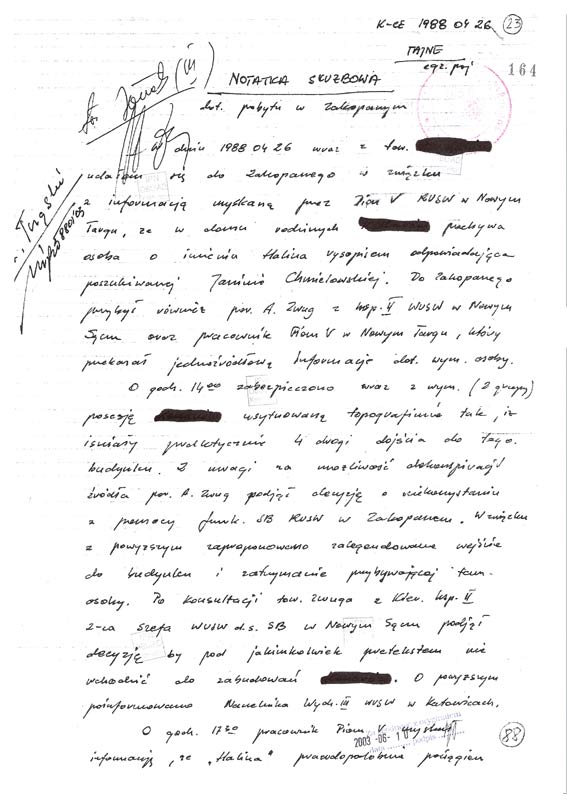 K-CE 1988 04 26 (23)
TAJNE
egz. poj
164
NOTATKA SŁUŻBOWA
dot. pobytu w Zakopanym
(III)
W dniu 1988 04 26 wraz z tow.
udałem się do Zakopanego w związku
z informacją uzyskaną przez Pion V RUSW w Nowym
Targu, że w domu rodzinnych przebywa
osoba o imieniu Halina rysopisem odpowiadająca
poszukiwanej Janinie Chmielowskiej. Do Zakopanego
przybył również por. A. Zwug z Insp. II WUSW w Nowym
Sączu oraz pracownik Pionu V w Nowym Targu, który
przekazał jednoźródłową informację dot. wym. osoby.
O godz. 14 00 zabezpieczono wraz z wym. (2 grupy)
posesję usytuowaną topograficznie tak, iż
istniały praktycznie 4 drogi dojścia do tego
budynku. Z uwagi na możliwość dekonspiracji
źródła por. A. Zwug podjął decyzję o niekorzystaniu
z pomocy funk. SB RUSW w Zakopanem. W związku
z powyższym zaproponowano zalegendowane wejście
do budynku i zatrzymanie przybywającej tam
osoby. Po konsultacji tow. Zwuga z Kier. Insp. II
z-ca Szefa WUSW d.s. SB w Nowym Sączu podjął
decyzję by pod jakimkolwiek pretekstem nie
wchodzić do zabudowań . O powyższym
poinformowano Naczelnika Wydz. III WUSW w Katowicach.
O godz. 17 30 pracownik Pionu V uzyskał
informację, że "Halina" prawdopodobnie pociągiem
2003 -06- 10
(88)